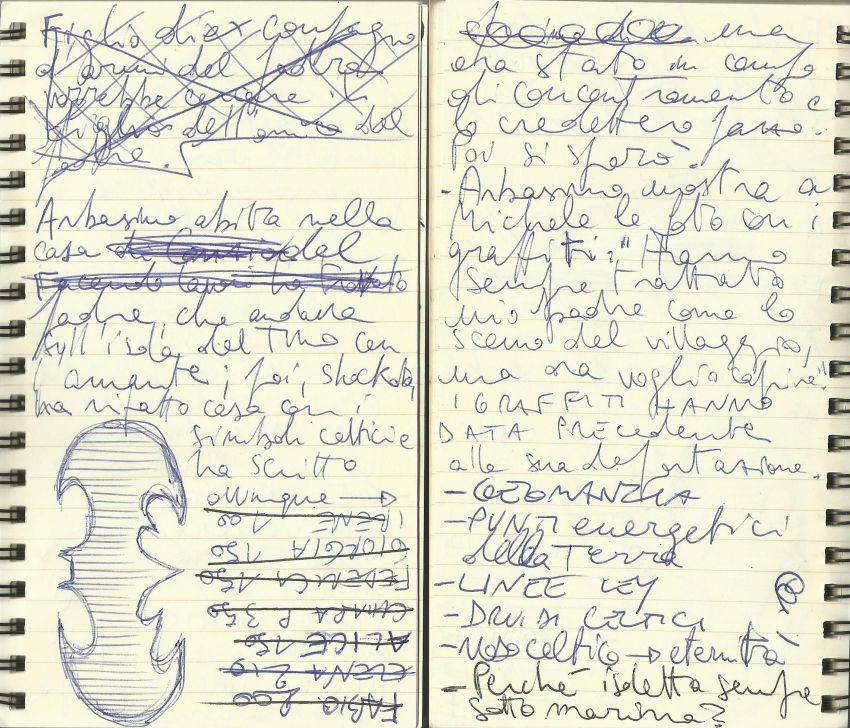 Figlio di ex compagno
d'armi del padre
vorrebbe
figlio dell'amico del
padre.
Arbasino abita nella
casa del
Facendo lavori ha trovato
padre, che andava
sull'isola del Tino con
l'amante; poi, shockato,
ha rifatto casa con i
simboli celtici e
ha scritto
ovunque →
IRENE 100
GIORGIA 150
FEDERICA 150
CHIARA P. 350
ALICE 150
ELENA 210
FABIO 200
una
era stato in campo
di concentramento e
lo credettero pazzo.
Poi si sparò.
- Arbasino mostra a
Michele le foto con i
graffiti: "Hanno
sempre trattato
mio padre come lo
scemo del villaggio,
ma ora voglio capire".
I GRAFFITI HANNO
DATA PRECEDENTE
alla sua deportazione.
- GEOMANZIA
- PUNTI energetici
della Terra
- LINEE LEY
- DRUIDI CELTICI
- Nodo celtico → eternità
- Perché isoletta sempre
sotto marina?